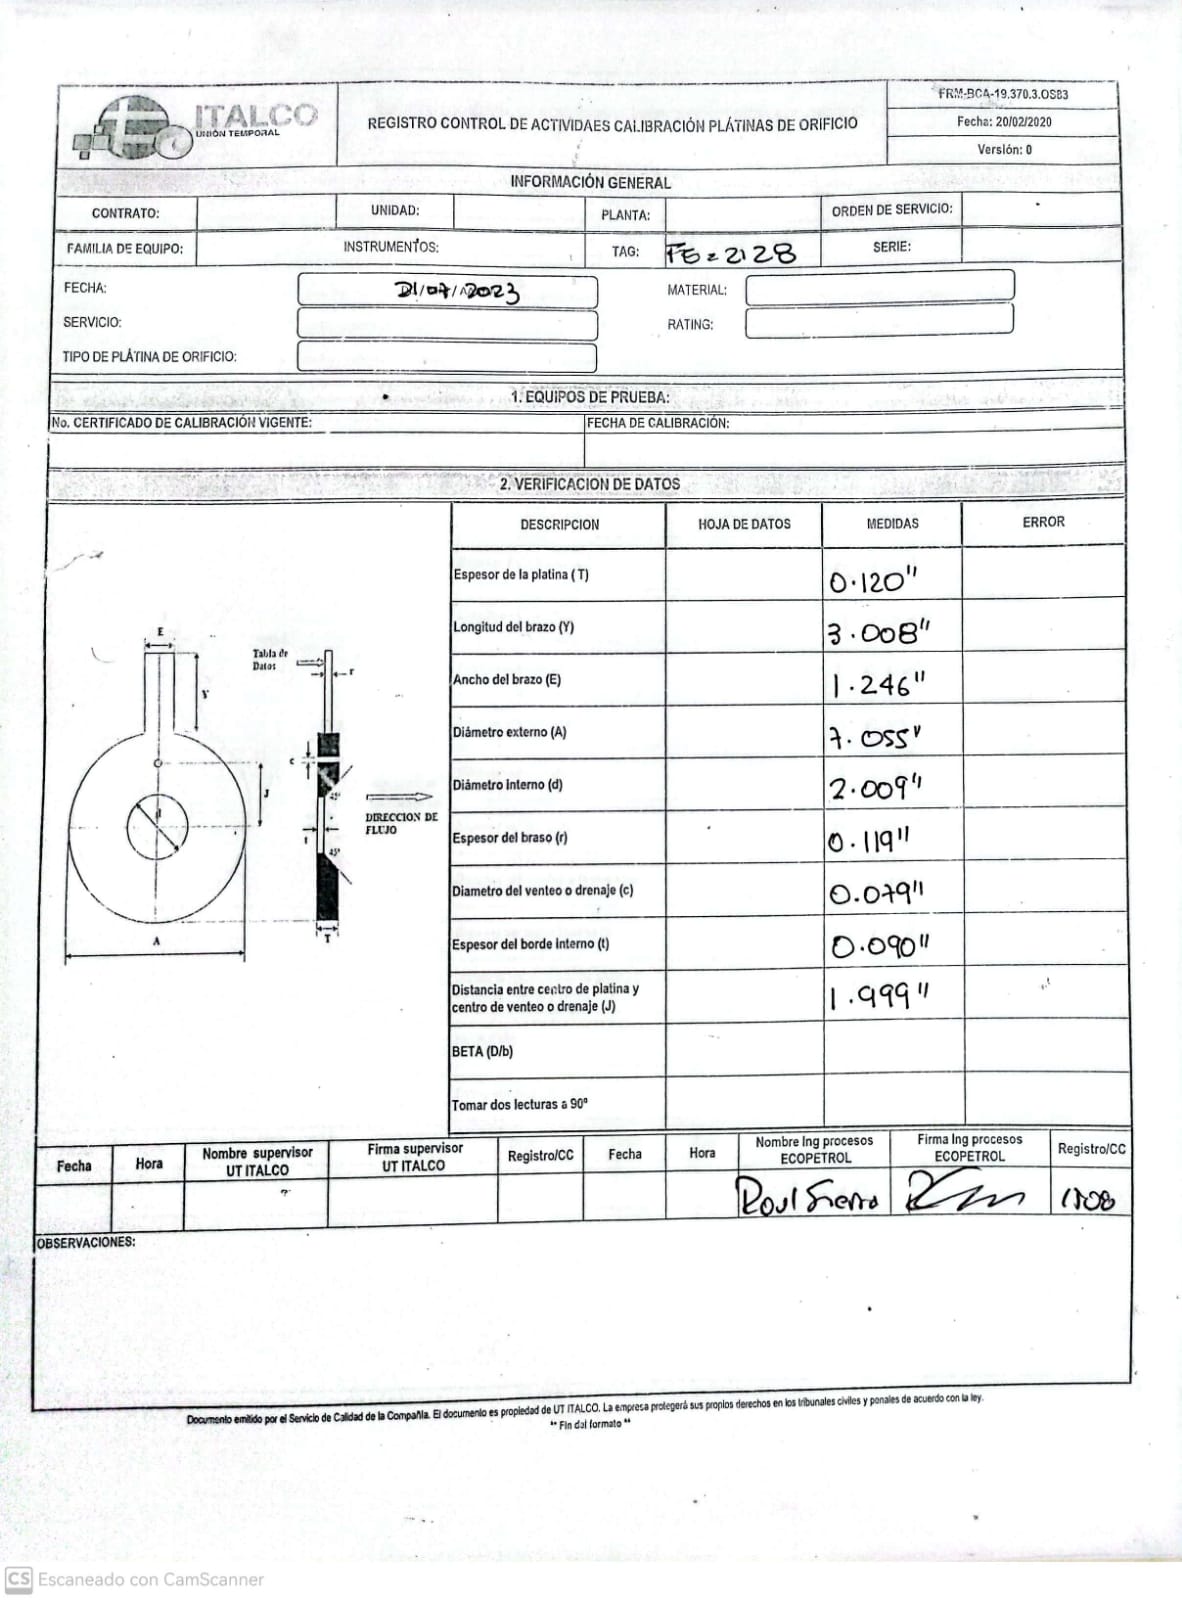 ITALCO
UNIÓN TEMPORAL
REGISTRO CONTROL DE ACTIVIDAES CALIBRACIÓN PLÁTINAS DE ORIFICIO
FRM-BCA-19.370.3.OSB3
Fecha: 20/02/2020
Versión: 0
INFORMACIÓN GENERAL
CONTRATO: UNIDAD: PLANTA: ORDEN DE SERVICIO:
FAMILIA DE EQUIPO: INSTRUMENTOS: TAG: FE-2128 SERIE:
FECHA: 21/07/2023 MATERIAL:
SERVICIO: RATING:
TIPO DE PLÁTINA DE ORIFICIO:
1. EQUIPOS DE PRUEBA:
No. CERTIFICADO DE CALIBRACIÓN VIGENTE: FECHA DE CALIBRACIÓN:
2. VERIFICACION DE DATOS
DESCRIPCION HOJA DE DATOS MEDIDAS ERROR
Espesor de la platina (T) 0.120"
Longitud del brazo (Y) 3.008"
Ancho del brazo (E) 1.246"
Diámetro externo (A) 7.055"
Diámetro interno (d) 2.009"
Espesor del braso (r) 0.119"
Diametro del venteo o drenaje (c) 0.079"
Espesor del borde interno (t) 0.090"
Distancia entre centro de platina y
centro de venteo o drenaje (J) 1.999"
BETA (D/b)
Tomar dos lecturas a 90º
E
Y
Tabla de
Datos
r
c
J
d
45º
DIRECCION DE
FLUJO
t
45º
A
T
Fecha Hora Nombre supervisor
UT ITALCO Firma supervisor
UT ITALCO Registro/CC Fecha Hora Nombre Ing procesos
ECOPETROL Firma Ing procesos
ECOPETROL Registro/CC
Raul Sierra
OBSERVACIONES:
Documento emitido por el Servicio de Calidad de la Compañía. El documento es propiedad de UT ITALCO. La empresa protegerá sus propios derechos en los tribunales civiles y penales de acuerdo con la ley.
** Fin dal formato **
CS Escaneado con CamScanner